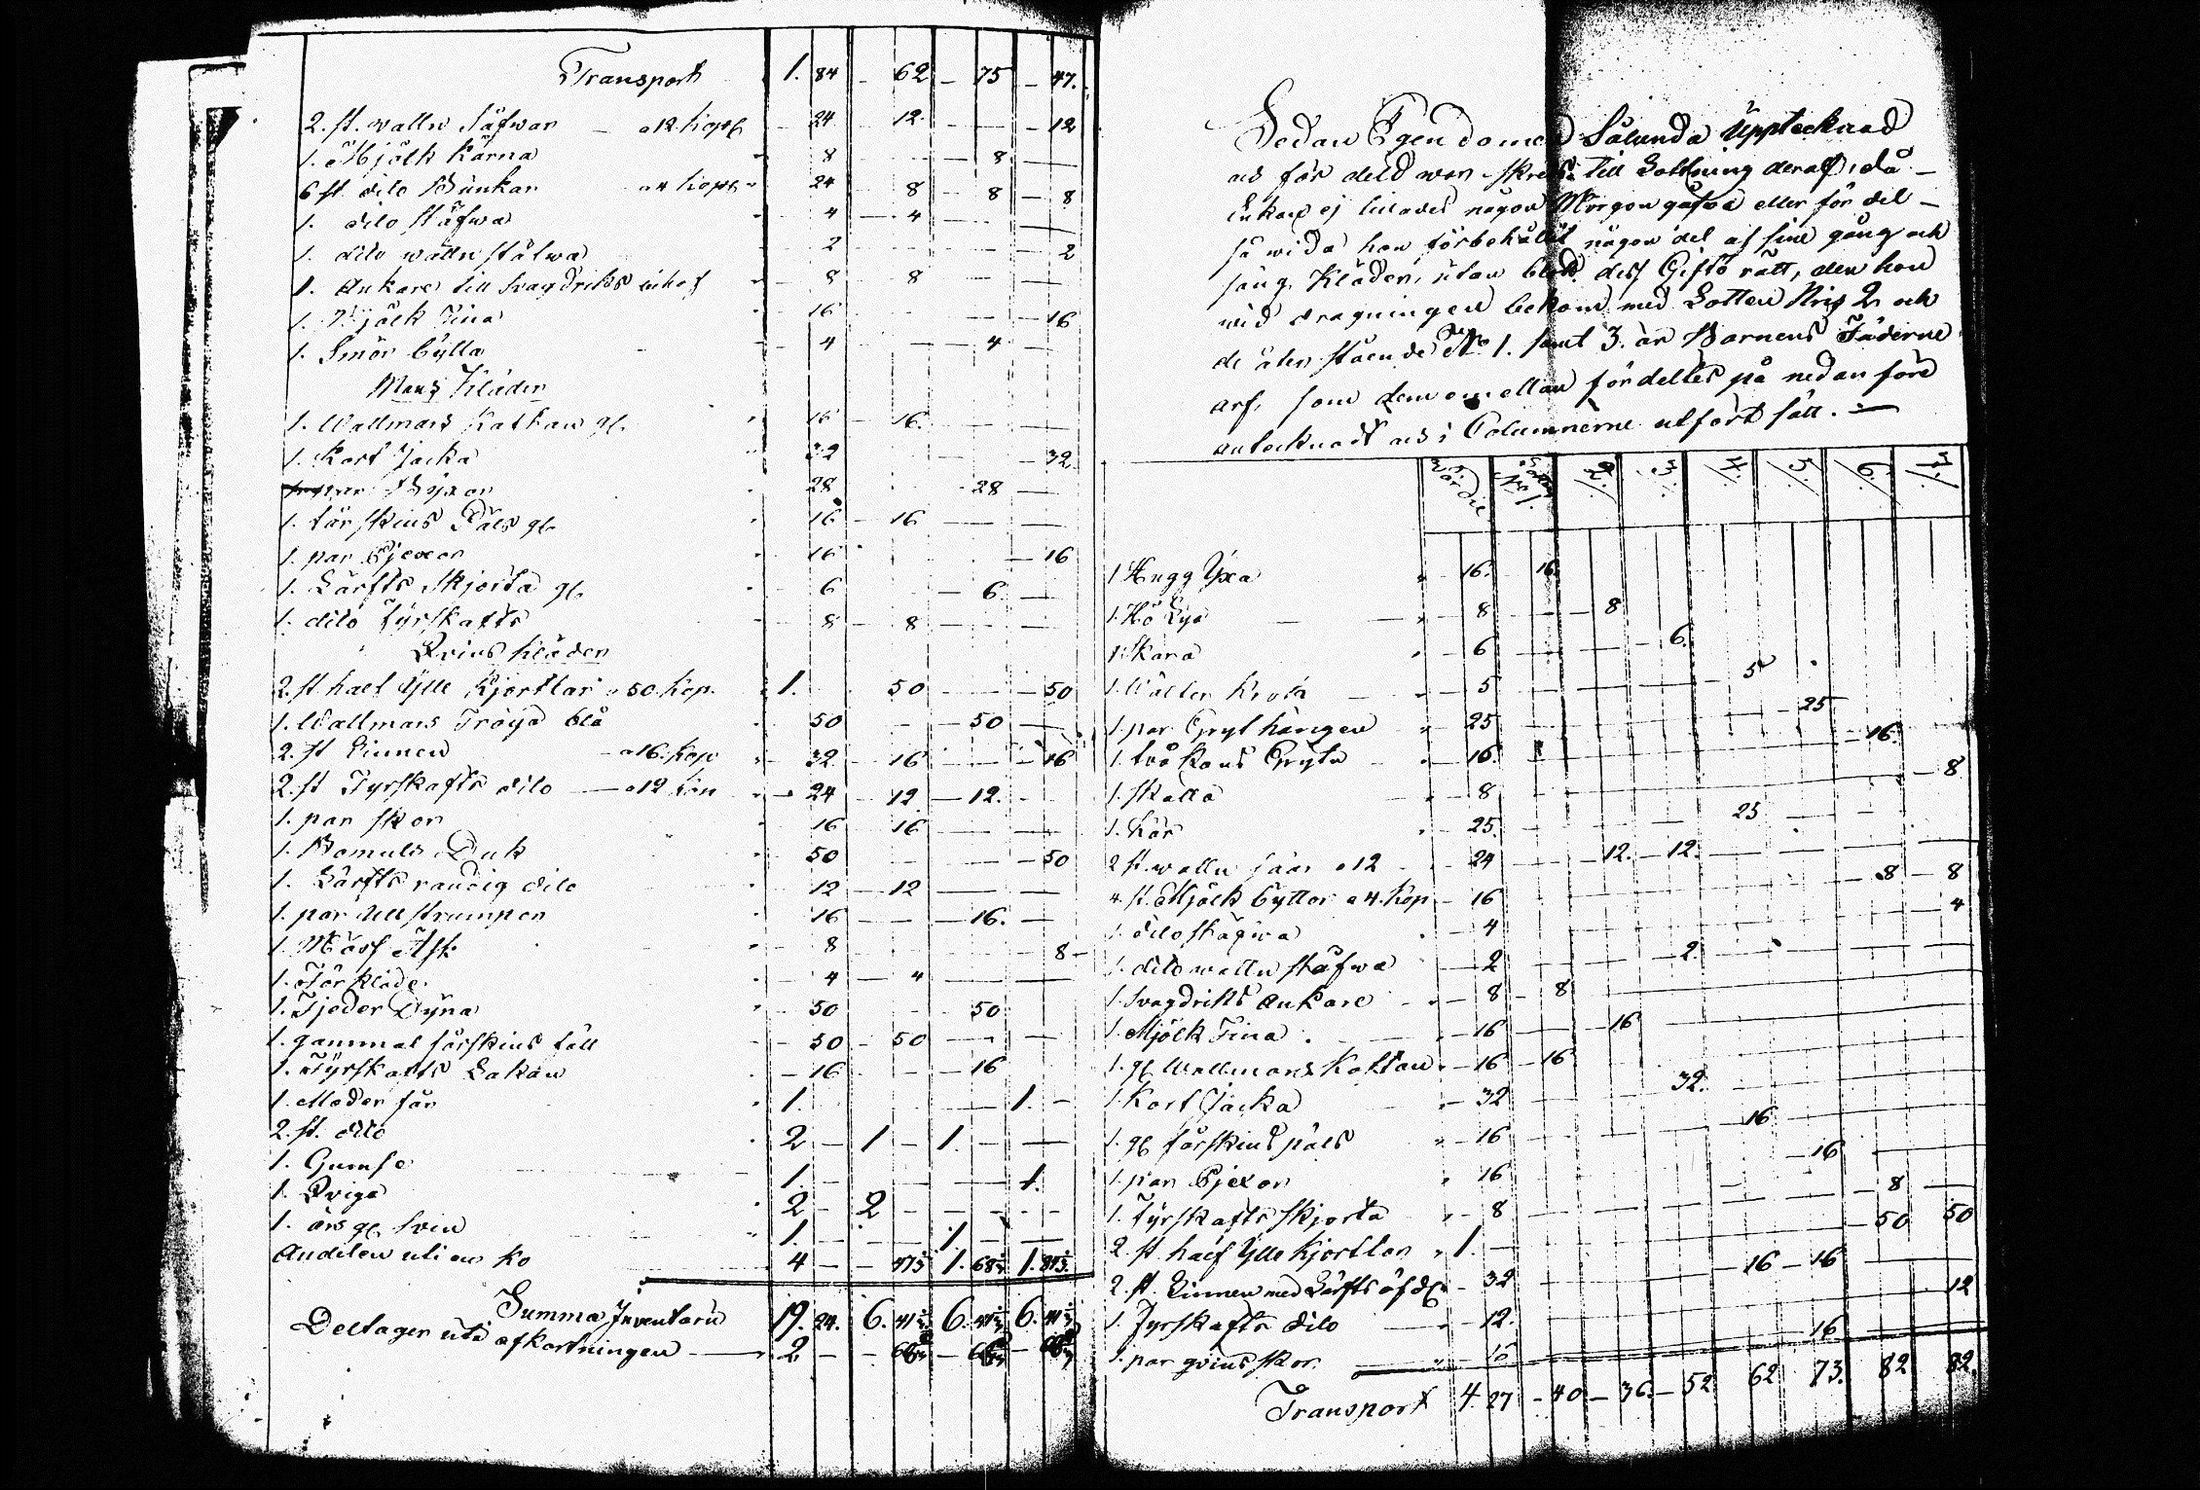 Transport 1. 84 - 62 - 75 - 47.
2. st. wattn Såfwar - a 12. kop - 24 - 12. - - - 12
1. Mjölk Kärna - 8 - - - 8. -
6 st. dito Bunkar a 4 kop - 24 - 8 - 8 - 8
1. dito stäfwa - 4 - 4 - - -
1. dito wattn stäfwa - 2 - - - 2
1. Ankare till Svagdricks - 8 - 8
1. Mjölk Tina - 16 - - - 16
1. Smör bytta - 4 - - 4 -
Mans Kläder
1. Wallmars Kaftan gl. - 16 - 16.
1. Kort Jacka - 32 - - - 32
1. par Byxor - 28 - - 28 -
1. fårskins Päls gl. - 16 - 16 - - -
1. par Pjexor - 16 - - - 16
1. Lärfts Skjorta gl. - 6 - - 6 -
1. dito Fyrskafts - 8 - 8 - - -
Qvins kläder
2. st. half Ylle Kjortlar a 50. Kop. 1. - 50 - - - 50
1. Wallmars Tröya blå - 50 - - 50 -
2. st Linnen - a 16. Kop - 32 - 16 - - - 16
2. st Fyrskafts dito - a 12 kop - 24 - 12 - 12. -
1. par skor - 16 - 16 - - -
1. Bomuls Duk - 50 - - - 50
1. Lärfts randig dito - 12 - 12 - - -
1. par Ull strumpor - 16 - - - 16. -
1. Mäss - 8 - - - 8 -
1. Förkläde - 4 - 4 - - -
1. Fjeder Dyna - 50 - - 50
1. gammal fårskins fäll - 50 - 50 - - -
1. Fyrskafts Lakan - 16 - - 16
1. Moder får 1. - - - 1. -
2. st. dito 2 - 1 - 1. - -
1. Gumse 1. - - - 1.
1. Qviga 2 - 2 - - - -
1. års gl. Svin 1 - - - 1. - -
Andelen uti en Ko 4 - - 47 5/7 1. 68 1. 84
Summa Inventarii 19. 24. 6. 41 6. 41 6. 41
Deltager uti afkortningen 2. - - 66 - 66 - 66
Sedan Egendomen Sålunda Upptecknad
och för deld war skreds till Lottning deraf, då -
Enkan ej tillades någon Morgongåfwa eller för del -
så wida hon förbehållit någon del af sine gång och
säng Kläder, utan blott dess Gifto rätt, den hon
wid dragningen bekom med Lotten Nris 2 och
de åter stående No 1. samt 3. är Barnens Fäderne
arf, som dem emellan fördeltes på nedan före
antecknadt och i Columnerne utfört sätt. -
Wärdie Lotten N:1. 2. 3. 4. 5. 6. 7.
1 Hugg Yxa - 16. - 16.
1. Hö Lya - 8 - - 8
1. Skära - 6 - - - 6.
1. Watten Krok - 5 - - - - 5
1. par Grythängen - 25 - - - - - 25
1. två kans Gryta - 16. - - - - - - 16.
1. Skålla - 8 - - - - - - - 8
1. Kar - 25. - - - - 25
2 st. wattn såar a 12 - 24 - - 12. - 12. - - - -
4 st. Mjölk byttor a 4. Kop - 16 - - - - - - 8 - 8
1. dito stäfwa - 4 - - - - - - - 4
1. dito wattn stäfwa - 2 - - - 2.
1. Svagdriks ankare - 8 - 8
1. Mjölk Tina - 16 - - 16
1. gl. Wallmars Kaftan - 16 - 16
1. Kort Jacka - 32 - - - 32.
1. gl. fårskins päls - 16 - - - - 16
1. par Pjexor - 16 - - - - - 16
1. Fyrskafts skjorta - 8 - - - - - - 8
2. st. half Ylle Kjortlar 1. - - - - - - 50 50
2. st. Linnen med Lärfts öfdl. - 32 - - - - 16 - 16
1. Fyrskafts dito - 12. - - - - - - - 12
1. par qvins skor. - 16 - - - - - 16
Transport 4. 27 - 40 - 36. - 52 62 73. 82 82.